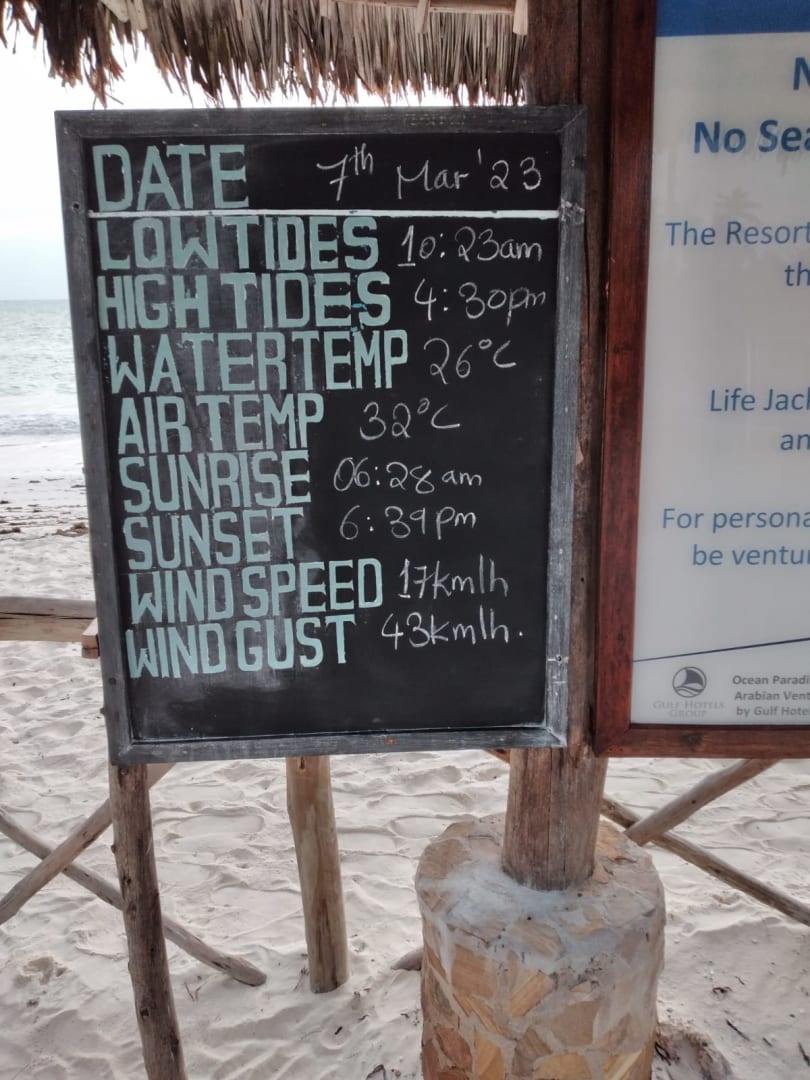 DATE 7th Mar '23
LOW TIDES 10:23am
HIGH TIDES 4:30pm
WATER TEMP 26°C
AIR TEMP 32°C
SUNRISE 06:28am
SUNSET 6:39pm
WIND SPEED 17km/h
WIND GUST 43km/h.
No Sea
The Resort
th
Life Jack
an
For persona
be ventur
GULF HOTELS
GROUP
Ocean Paradi
Arabian Vent
by Gulf Hote